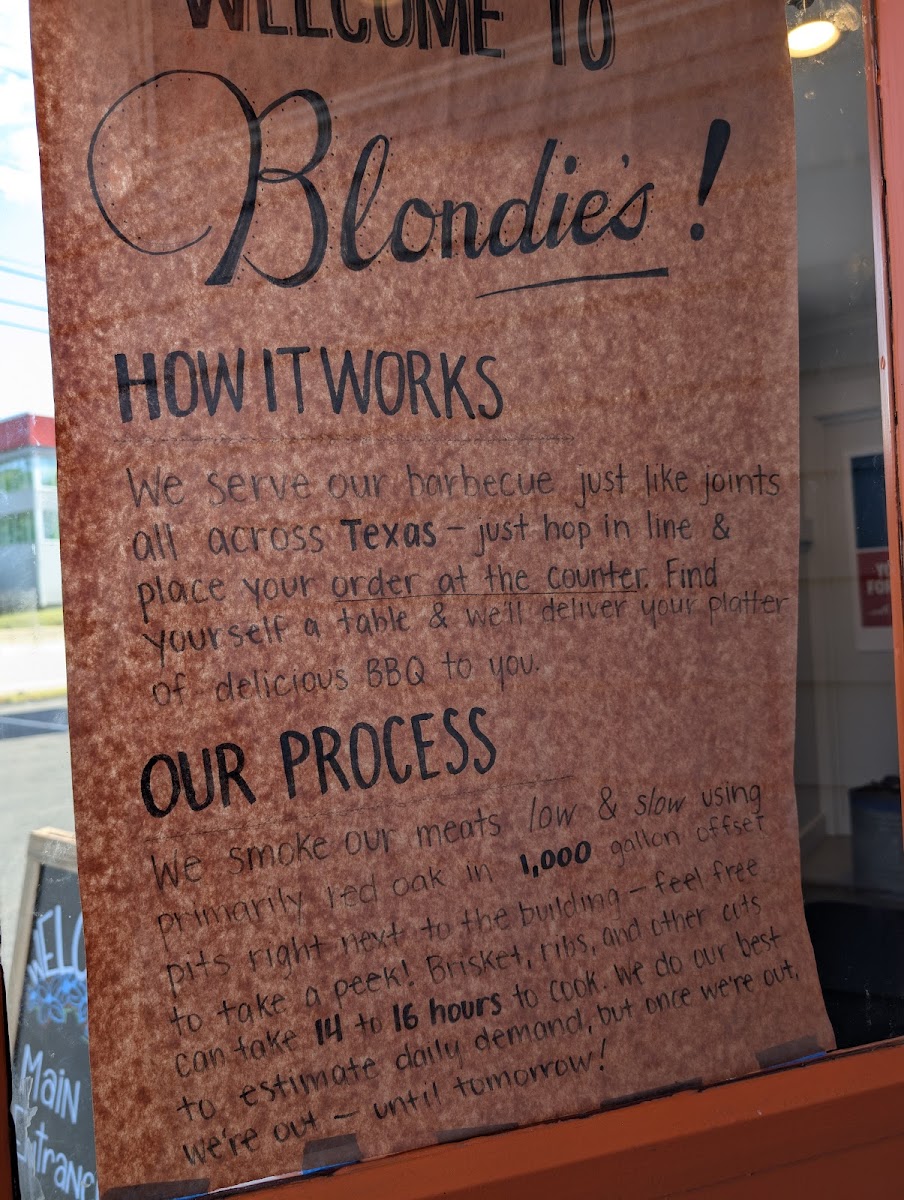 WELCOME TO
Blondie's!
HOW IT WORKS
We serve our barbecue just like joints
all across Texas – just hop in line &
place your order at the counter. Find
yourself a table & we'll deliver your platter
of delicious BBQ to you.
OUR PROCESS
We smoke our meats low & slow using
primarily red oak in 1,000 gallon offset
pits right next to the building – feel free
to take a peek! Brisket, ribs, and other cuts
can take 14 to 16 hours to cook. We do our best
to estimate daily demand, but once we're out,
we're out – until tomorrow!
Main